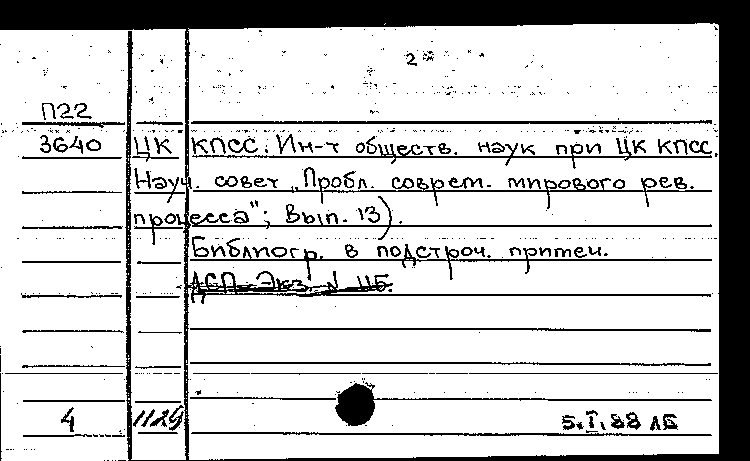 2
П22
3640 ЦК КПСС. Ин-т обществ. наук при ЦК КПСС.
Науч. совет „Пробл. соврем. мирового рев.
процесса"; Вып. 13).
Библиогр. в подстроч. примеч.
ДСП. Экз. N 115.
4 1129 5.I.88 ЛБ